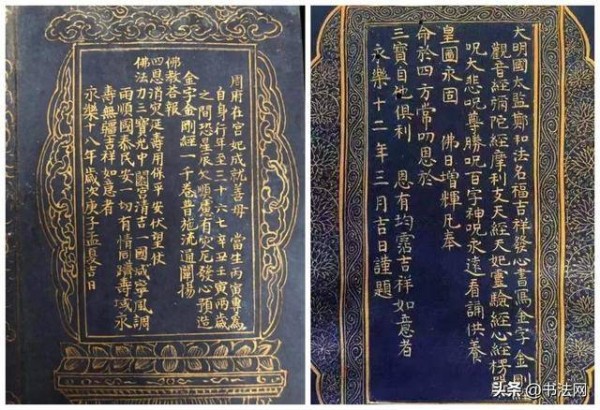 周府在宮妃成就善母 當生丙寅專為
自身行年至三十六七辛丑壬寅兩歲
之間恐星辰欠順慮有灾厄發心預造
金字金剛經一千卷普施流通闡揚
佛教荅報
四恩消灾延壽用保平安伏望仗
佛法力三寶光中闔宮清吉一國咸寧風調
雨順國泰民安一切有情同躋壽域永
壽無疆吉祥如意者
永樂十八年歲次庚子孟夏吉日
大明國太監鄭和法名福吉祥發心書寫金字金剛
觀音經彌陀經摩利支天經天妃靈驗經心經楞嚴
呪大悲呪尊勝呪百字神呪永遠看誦供養
皇圖永固 佛日增輝凡奉
命於四方常叨恩於
三寶自他俱利 恩有均霑吉祥如意者
永樂十二年三月吉日謹題
头条 @书法网